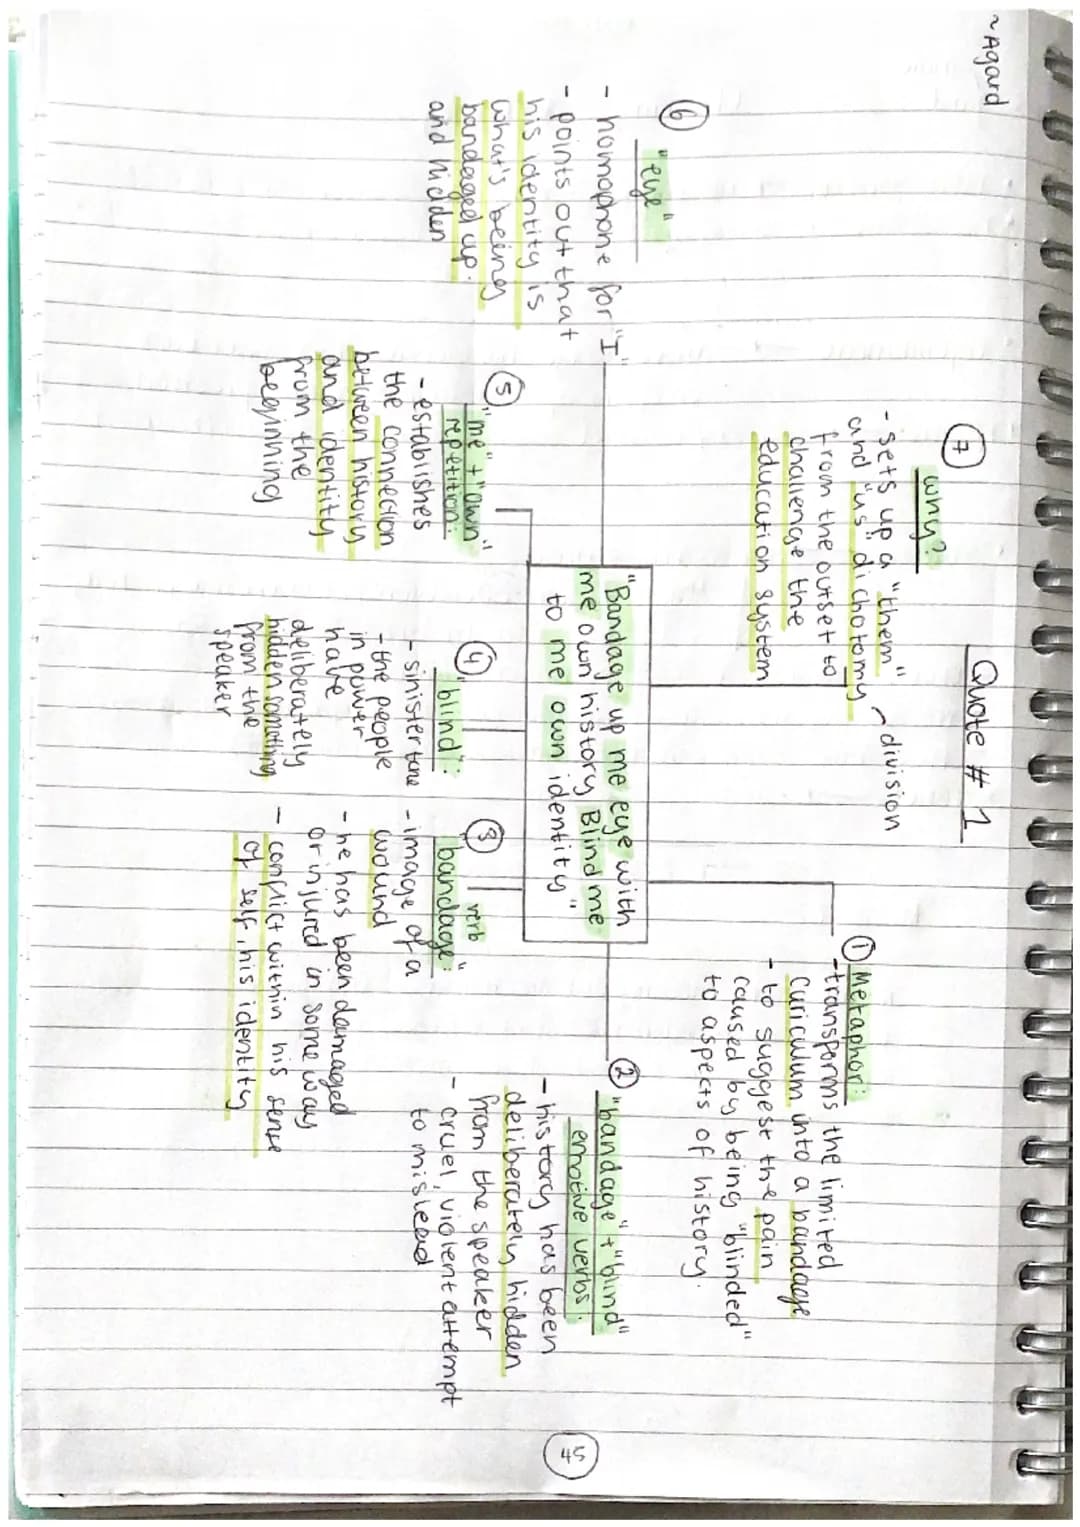 ~ Agard
Quote # 1
"Bandage up me eye with
me own history Blind me
to me own identity"
① Metaphor:
- transforms the limited
curiculum into a bandage
- to suggest the pain
caused by being "blinded"
to aspects of history.
② "bandage" + "blind"
emotive verbs:
- history has been
deliberately hidden
from the speaker
- cruel, violent attempt
to mislead
③ verb
"bandage":
- image of a
wound
- he has been damaged
or injured in some way
- conflict within his sense
of self, his identity
④ "blind":
- sinister tone
- the people
in power
have
deliberately
hidden something
from the
speaker
⑤ "me" + "own"
repetition:
- establishes
the connection
between history
and identity
from the
beginning
⑥ "eye"
- homophone for "I"
- points out that
his identity is
what's being
bandaged up.
and hidden
⑦ why?
- sets up a "them"
and "us" dichotomy
division
from the outset to
challenge the
education system
45